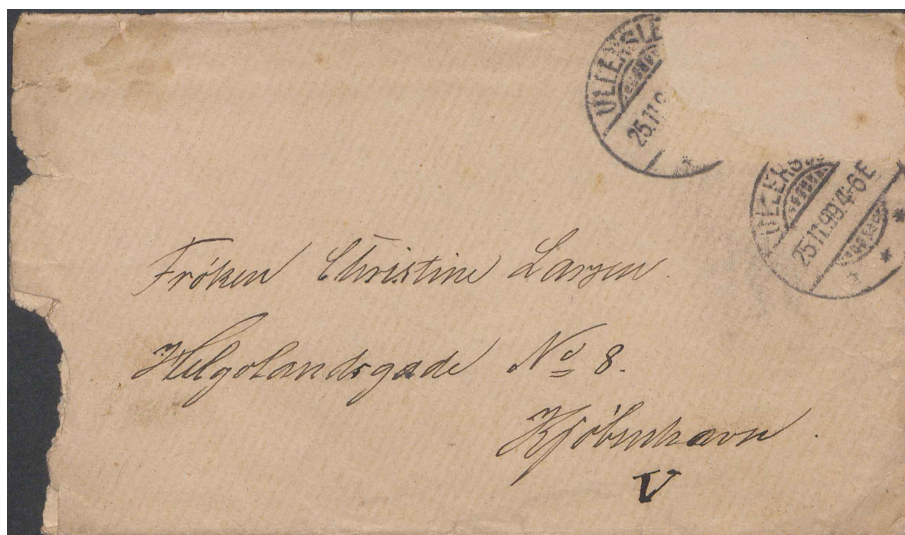 ULLERSLE
25.11.9
ULLERSL
25.11.99.4-6E
Frøken Christine Larsen.
Helgolandsgade No 8.
Kjøbenhavn.
V